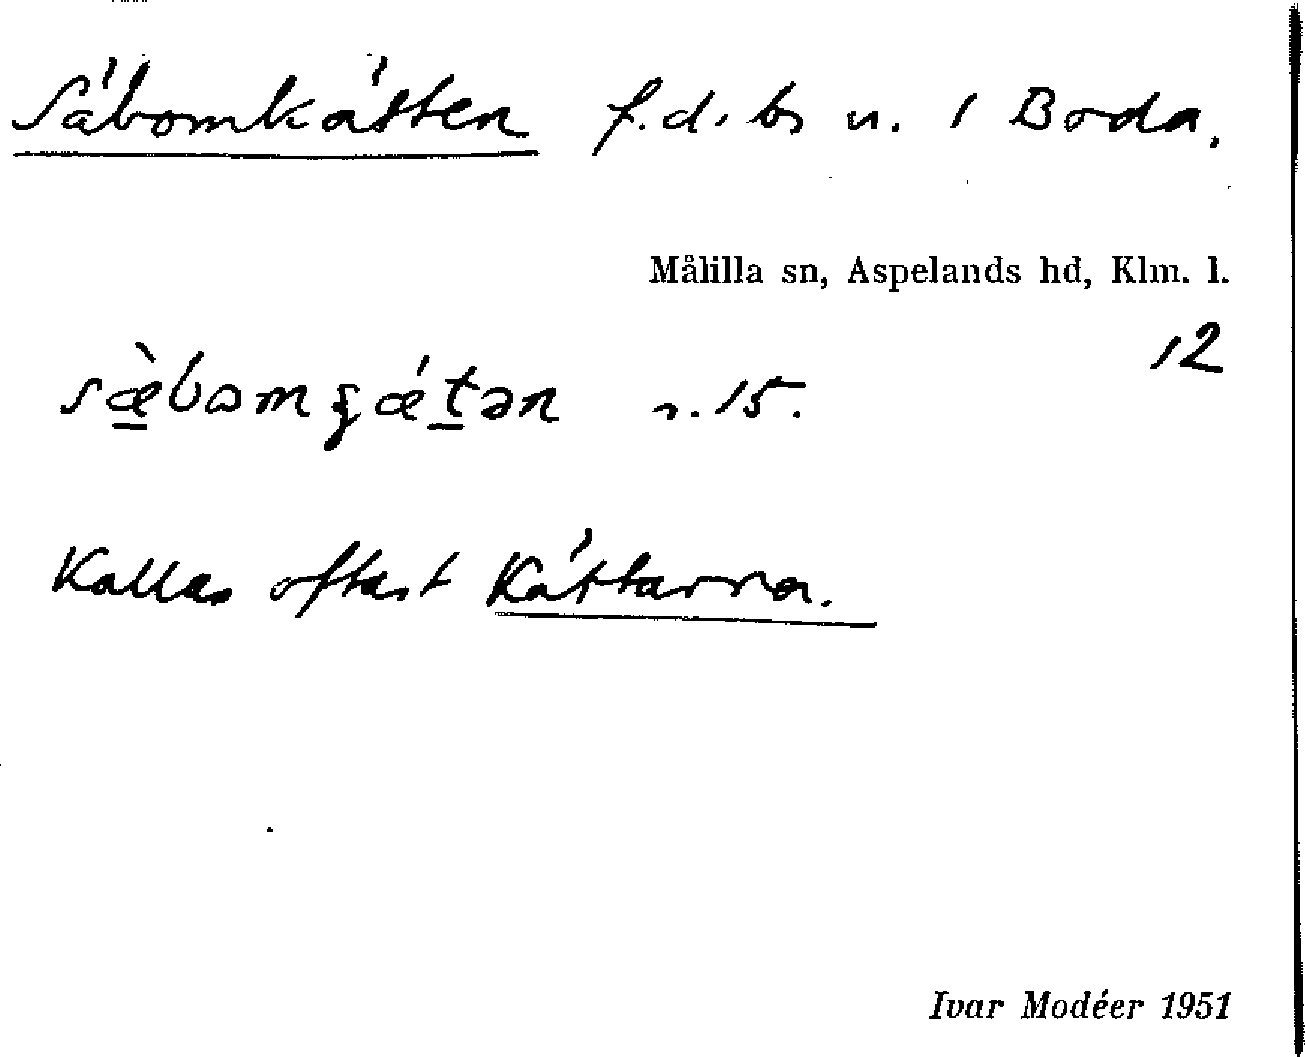 Sábomkátten f.d. bs u. 1 Boda.
Målilla sn, Aspelands hd, Klm. l.
12
sæ̀bomgǽtən n. 15.
Kallas oftast Káttarna.
Ivar Modéer 1951